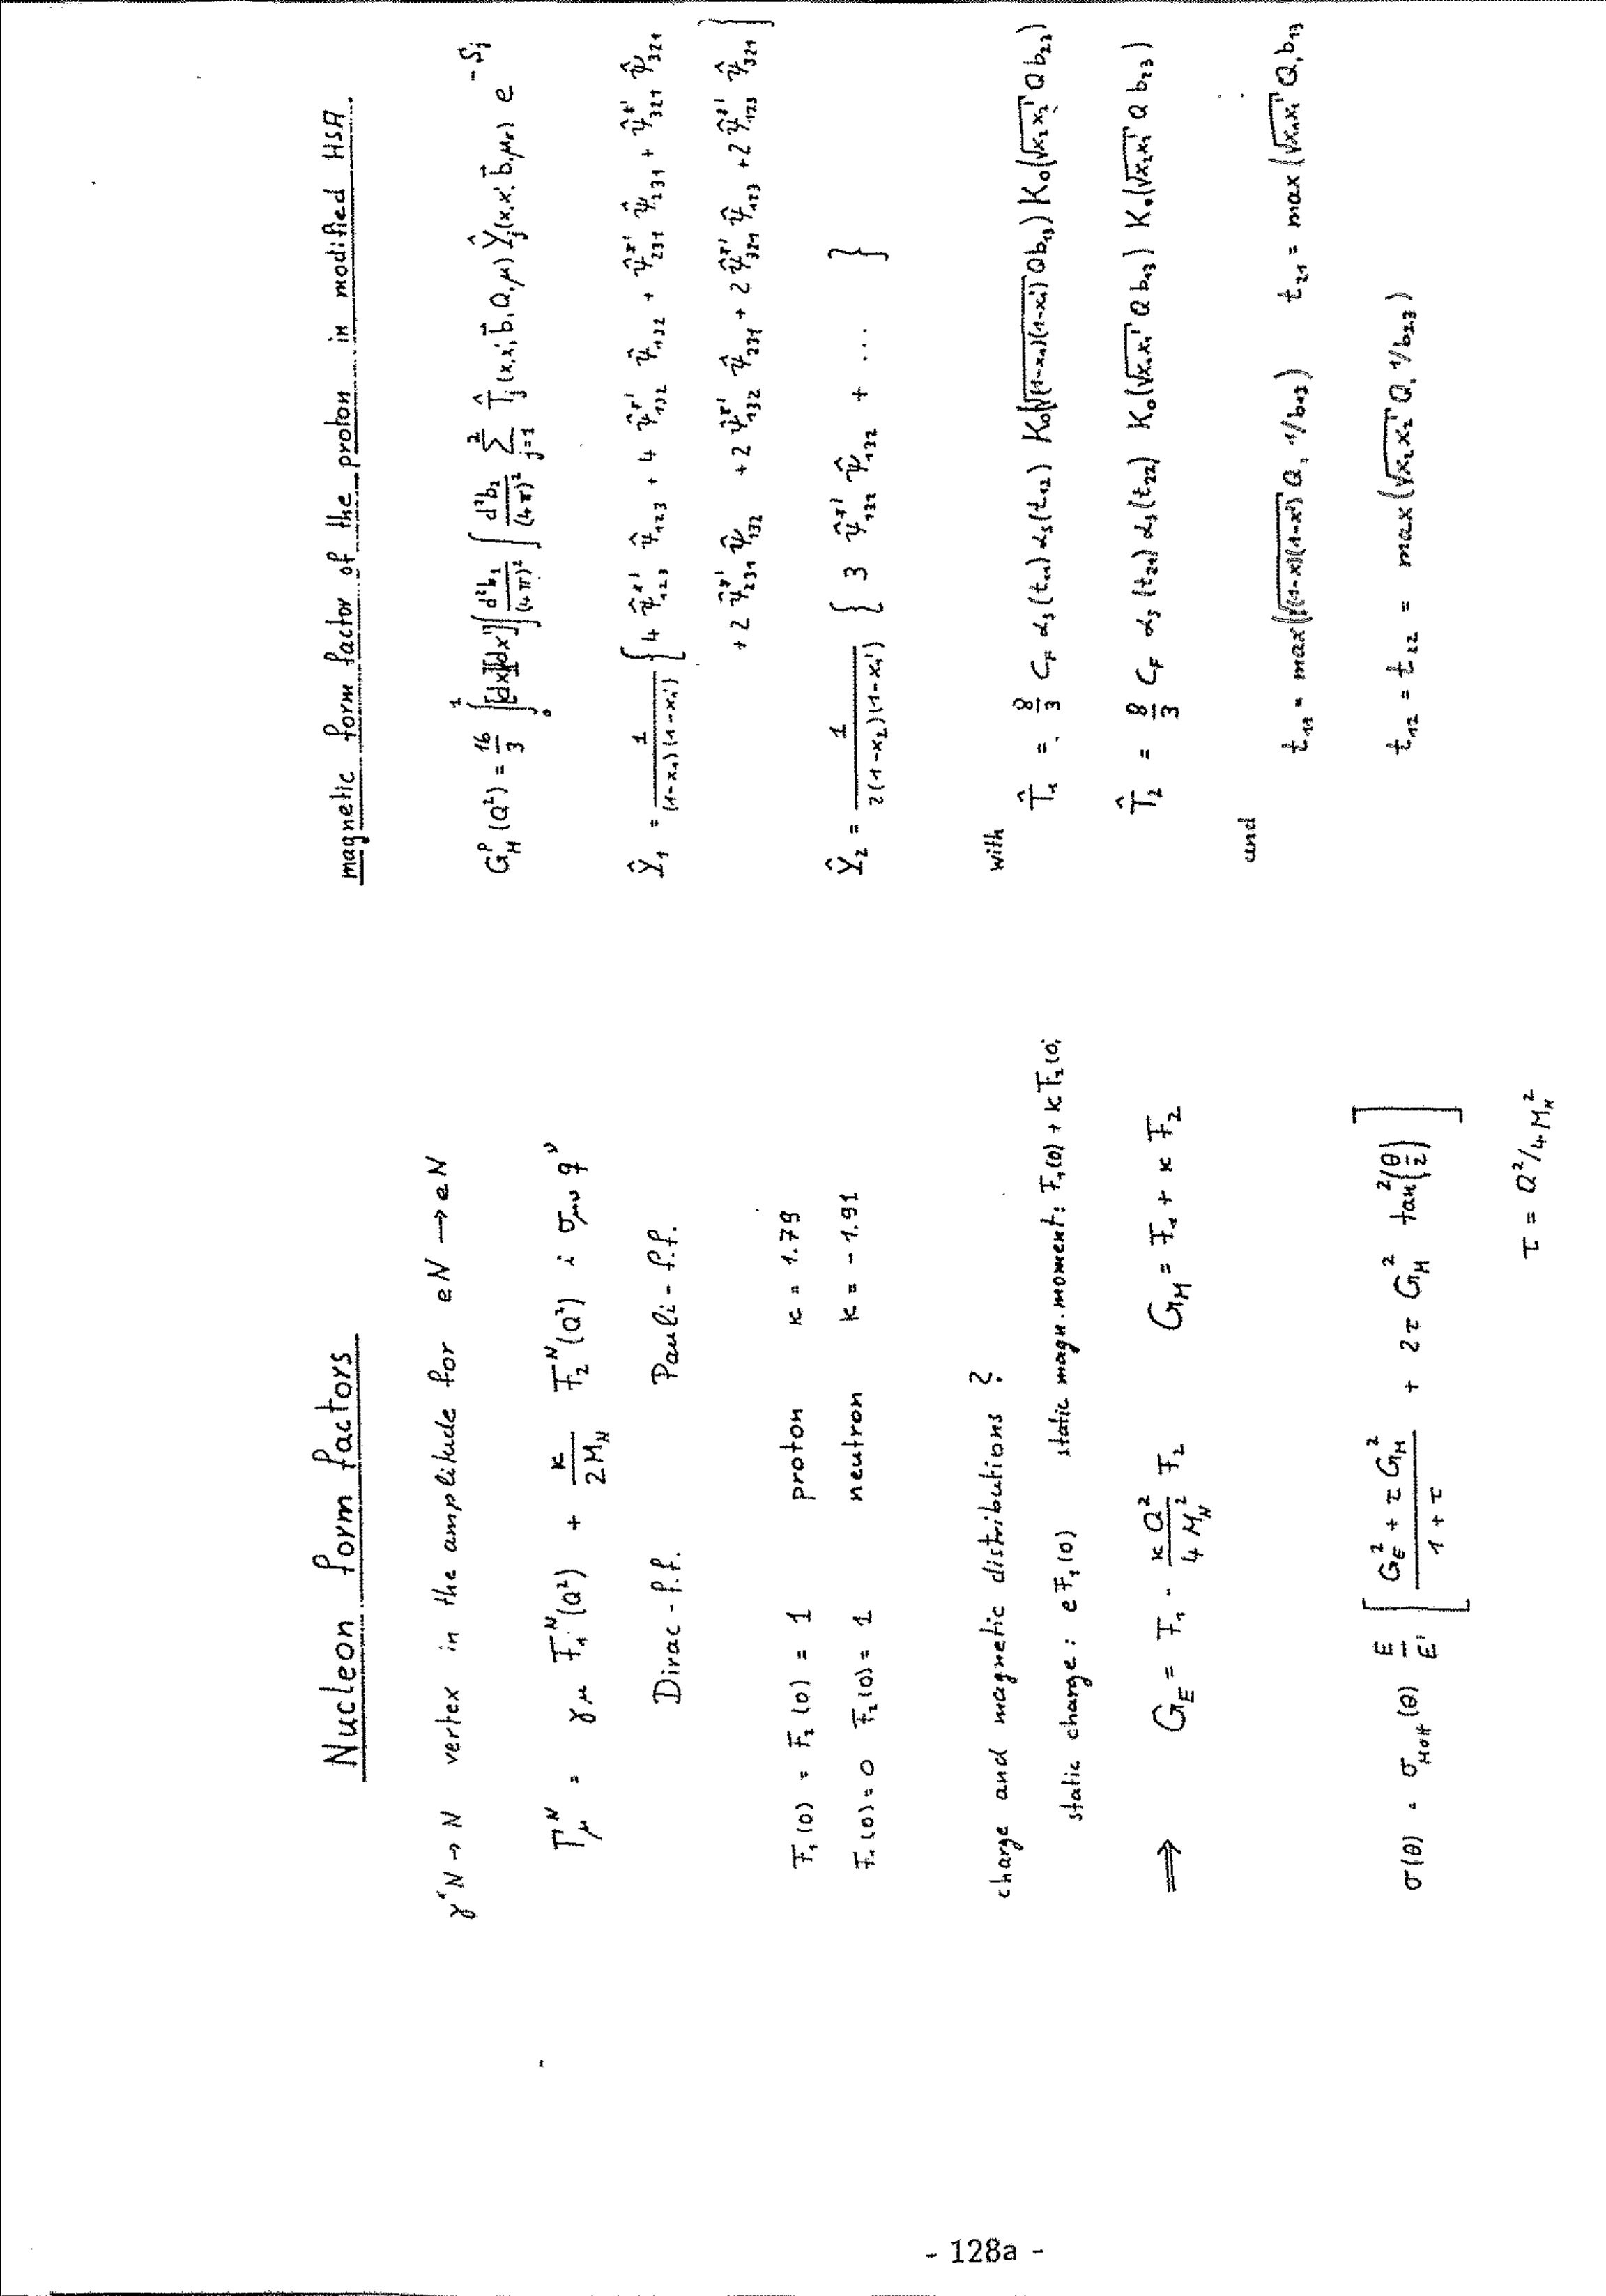 Nucleon form factors
γ*N → N vertex in the amplitude for eN → eN
Γ_μ^N = γ_μ F_1^N(Q²) + κ/2M_N F_2^N(Q²) i σ_μν q^ν
Dirac-f.f. Pauli-f.f.
F_1(0) = F_2(0) = 1 proton κ = 1.79
F_1(0) = 0 F_2(0) = 1 neutron κ = -1.91
charge and magnetic distributions ?
static charge: e F_1(0) static magn. moment: F_1(0) + κ F_2(0)
⟹ G_E = F_1 - κQ²/4M_N² F_2 G_M = F_1 + κ F_2
σ(θ) = σ_Mott(θ) E/E' [ (G_E² + τ G_M²)/(1+τ) + 2τ G_M² tan²(θ/2) ]
τ = Q²/4M_N²
magnetic form factor of the proton in modified HSA
G_M^P(Q²) = 16/3 ∫_0^1 [dx][dx'] ∫ d²b_1/(4π)² ∫ d²b_2/(4π)² Σ_{j=1}^2 T̂_j(x,x',b⃗,Q,μ) Ŷ_j(x,x',b⃗,μ_F) e^{-S_j}
Ŷ_1 = 1/((1-x_1)(1-x_1')) { 4 ψ̂*'_123 ψ̂_123 + 4 ψ̂*'_132 ψ̂_132 + ψ̂*'_231 ψ̂_231 + ψ̂*'_321 ψ̂_321
+ 2 ψ̂*'_231 ψ̂_132 + 2 ψ̂*'_132 ψ̂_231 + 2 ψ̂*'_321 ψ̂_123 + 2 ψ̂*'_123 ψ̂_321 }
Ŷ_2 = 1/(2(1-x_2)(1-x_1')) { 3 ψ̂*'_132 ψ̂_132 + ... }
with
T̂_1 = 8/3 C_F α_s(t_11) α_s(t_12) K_0(√((1-x_1)(1-x_1')) Q b_13) K_0(√(x_2x_2') Q b_23)
T̂_2 = 8/3 C_F α_s(t_21) α_s(t_22) K_0(√(x_1x_1') Q b_13) K_0(√(x_2x_2') Q b_23)
and
t_11 = max(√((1-x)(1-x')) Q, 1/b_13) t_21 = max(√(x_1x_1') Q, b_13
t_12 = t_22 = max(√(x_2x_2') Q, 1/b_23)
- 128a -